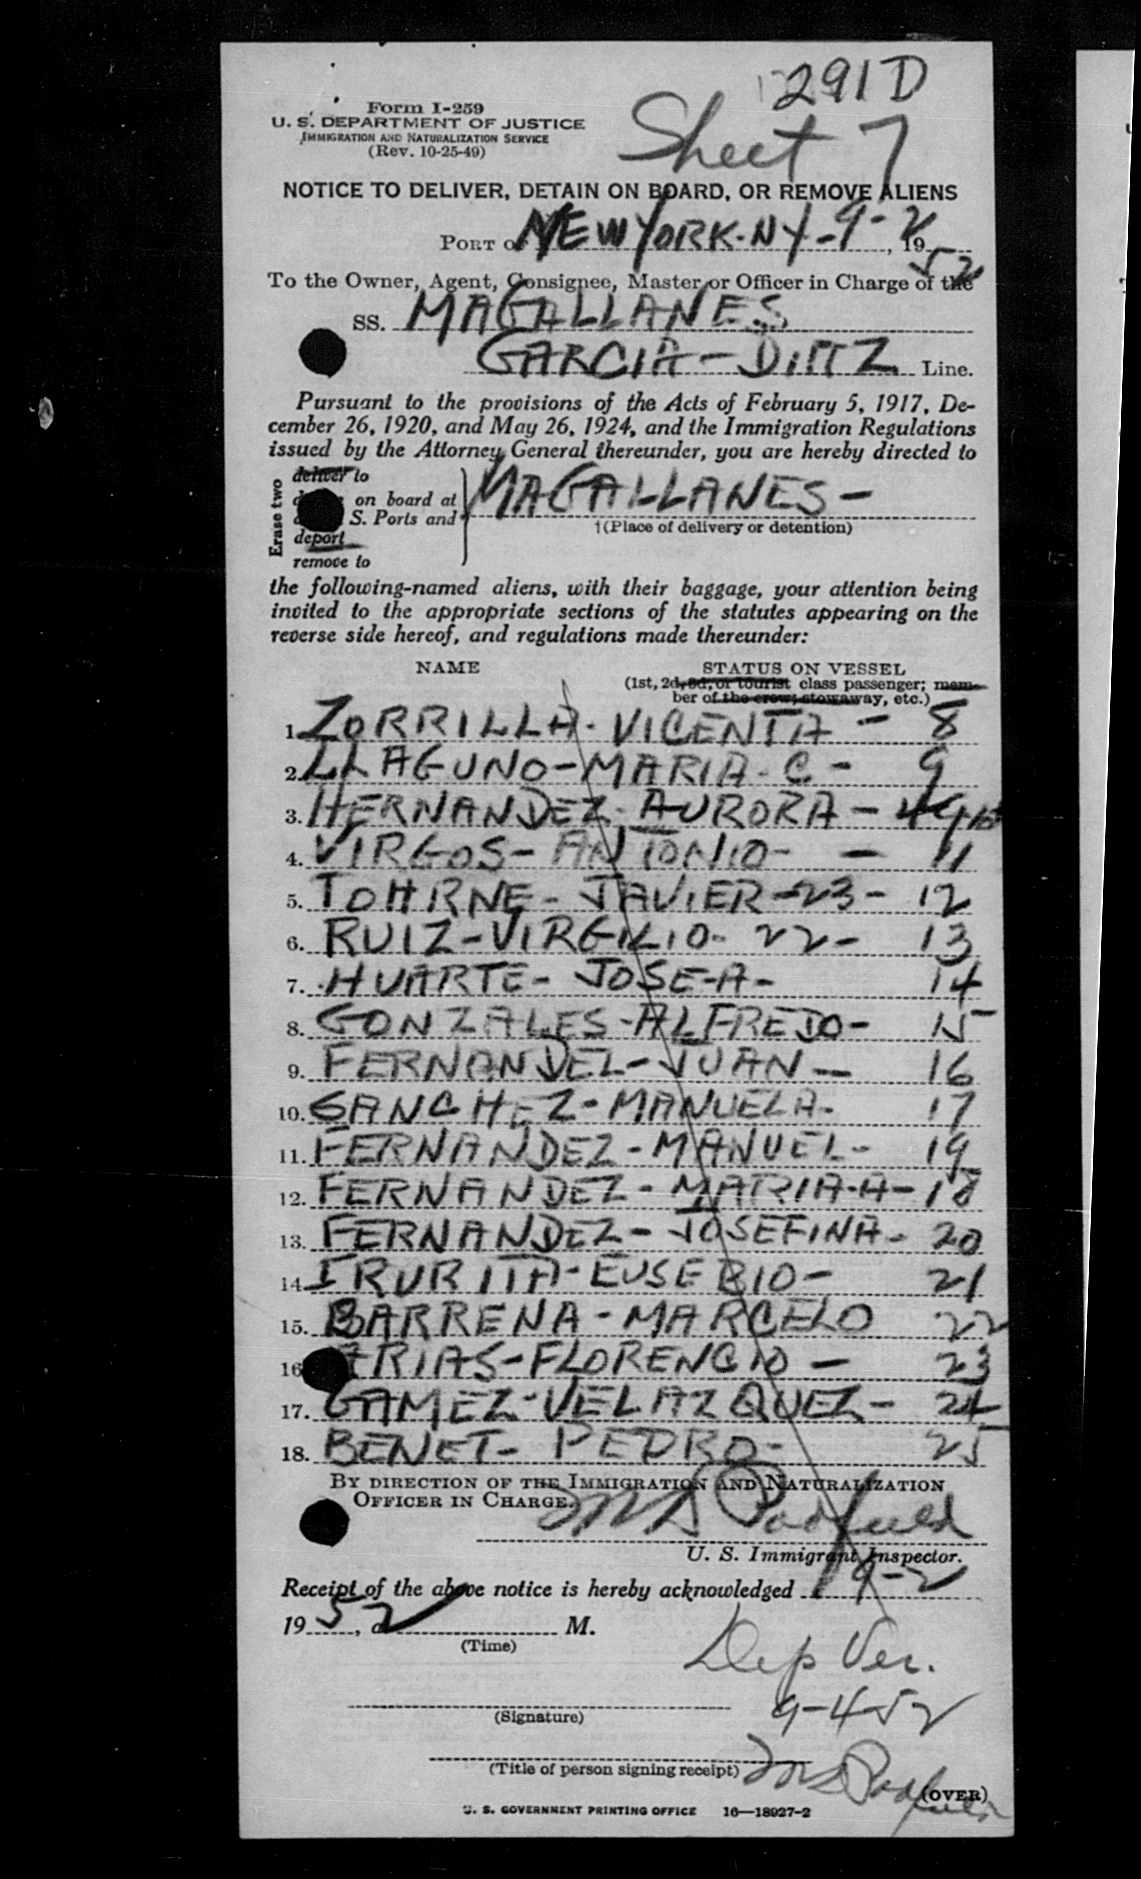 291D
Form I-259
U. S. DEPARTMENT OF JUSTICE
IMMIGRATION AND NATURALIZATION SERVICE
(Rev. 10-25-49)
Sheet 7
NOTICE TO DELIVER, DETAIN ON BOARD, OR REMOVE ALIENS
PORT OF NEW YORK-NY-9-2, 1952
To the Owner, Agent, Consignee, Master or Officer in Charge of the
SS. MAGALLANES
GARCIA-DIAZ Line.
Pursuant to the provisions of the Acts of February 5, 1917, De-
cember 26, 1920, and May 26, 1924, and the Immigration Regulations
issued by the Attorney General thereunder, you are hereby directed to
Erase two
deliver to
on board at
S. Ports and
deport
remove to
MAGALLANES-
†(Place of delivery or detention)
the following-named aliens, with their baggage, your attention being
invited to the appropriate sections of the statutes appearing on the
reverse side hereof, and regulations made thereunder:
NAME STATUS ON VESSEL
(1st, 2d, 3d, or tourist class passenger; mem-
ber of the crew, stowaway, etc.)
1. ZORRILLA-VICENTA - 8
2. LLAGUNO-MARIA-C- 9
3. HERNANDEZ-AURORA- 10
4. VIRGOS-ANTONIO- - 11
5. TOHRNE-JAVIER-23- 12
6. RUIZ-VIRGILIO-22- 13
7. HUARTE-JOSE-A- 14
8. GONZALES-ALFREDO- 15
9. FERNANDEZ-JUAN- 16
10. SANCHEZ-MANUELA- 17
11. FERNANDEZ-MANUEL- 19
12. FERNANDEZ-MARIA-A- 18
13. FERNANDEZ-JOSEFINA- 20
14. IRURITA-EUSEBIO- 21
15. BARRENA-MARCELO 22
16. ARIAS-FLORENCIO- 23
17. GAMEZ-VELAZQUEZ- 24
18. BENET-PEDRO- 25
BY DIRECTION OF THE IMMIGRATION AND NATURALIZATION
OFFICER IN CHARGE.
Padfield
U. S. Immigrant Inspector.
Receipt of the above notice is hereby acknowledged 9-2
1952, at M.
(Time)
Dep Ver.
9-4-52
(Signature)
(Title of person signing receipt)
Padfield
(OVER)
U. S. GOVERNMENT PRINTING OFFICE 16—18927-2